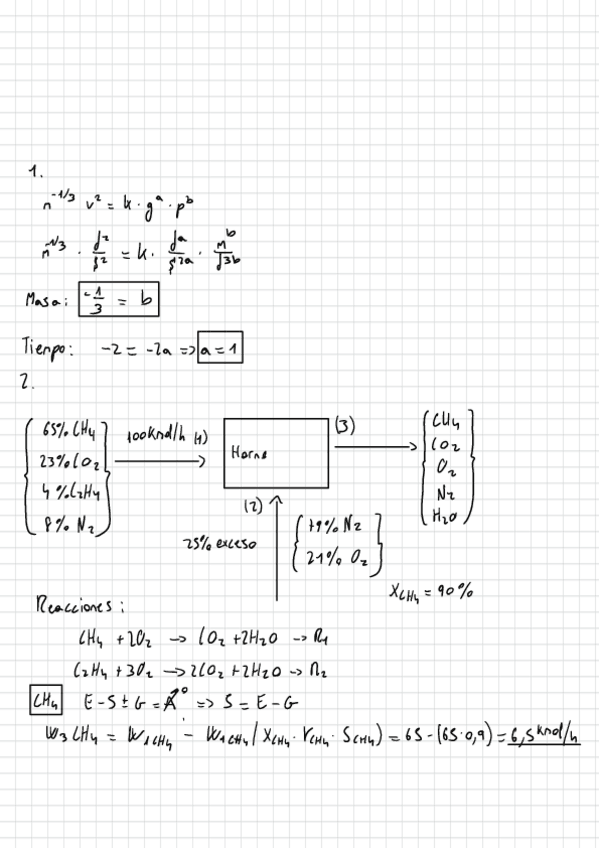 1.
m^{-1/3} v² = k · g^a · ρ^b
m^{-1/3} · d²/s² = k · d^a/s^{2a} · M^b/d^{3b}
Masa: -1/3 = b
Tiempo: -2 = -2a => a = 1
2.
65% CH4
23% CO2
4% C2H4
8% N2
100 Kmol/h (1)
Horno
(3)
CH4
CO2
O2
N2
H2O
(2)
25% exceso
79% N2
21% O2
X_{CH4} = 90%
Reacciones:
CH4 + 2O2 → CO2 + 2H2O → R1
C2H4 + 3O2 → 2CO2 + 2H2O → R2
CH4 E - S ± G = A⁰ => S = E - G
W3 CH4 = W1 CH4 - W1 CH4 (X_{CH4} · r_{CH4} · S_{CH4}) = 65 - (65 · 0,9) = 6,5 kmol/h